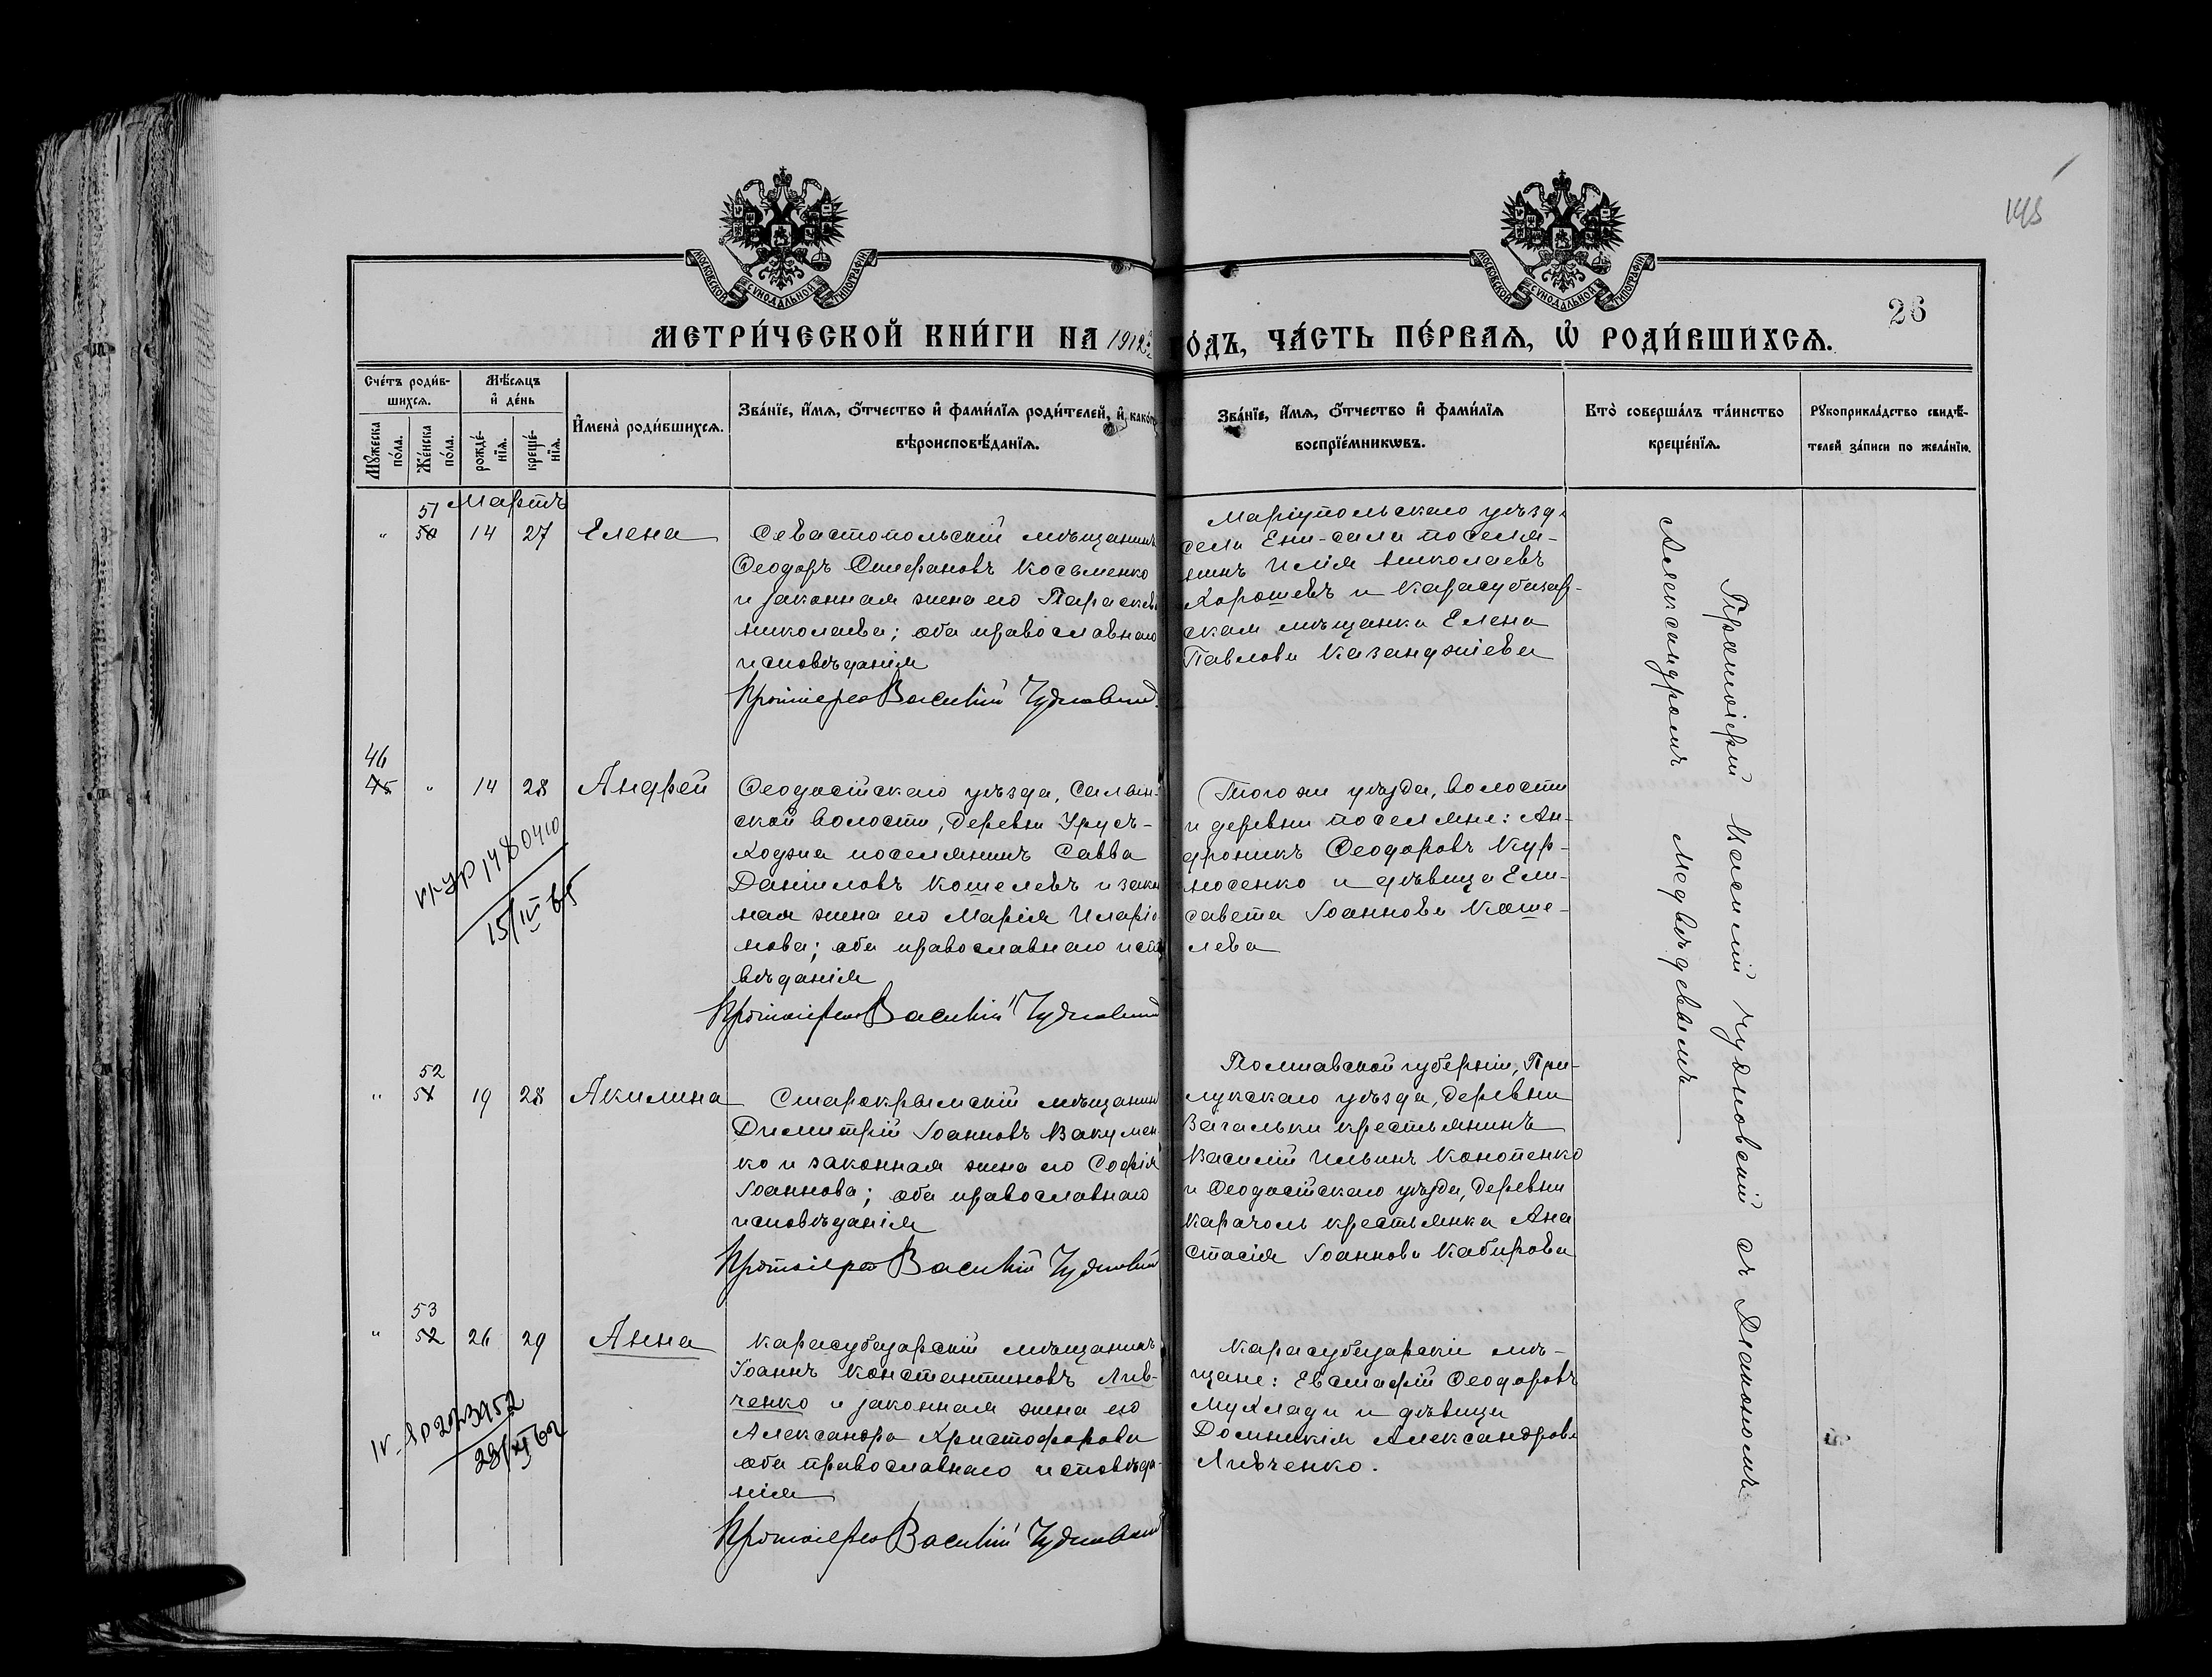 145
26
МОСКОВСКОЙ СѴНОДАЛЬНОЙ ТИПОГРАФІИ
МОСКОВСКОЙ СѴНОДАЛЬНОЙ ТИПОГРАФІИ
МЕТРИ́ЧЕСКОЙ КНИ́ГИ НА 1912
О́ДЪ, ЧА́СТЬ ПЕ́РВАѦ, Ѡ҆ РОДИ́ВШИХСѦ.
Сче́тъ роди́в-
шихсѧ.
Мѣ́сѧцъ
и҆ де́нь
Мꙋ́жеска по́ла.
Же́нска по́ла.
рожде́-
нїѧ.
креще́-
нїѧ.
И҆мена̀ роди́вшихсѧ.
Зва́нїе, и҆́мѧ, о҆́тчество и҆ фами́лїѧ роди́телей, и҆ како́гѡ
вѣроисповѣ́данїѧ.
Зва́нїе, и҆́мѧ, о҆́тчество и҆ фами́лїѧ
воспрїе́мникѡвъ.
Кто̀ соверша́лъ та́инство
креще́нїѧ.
Рꙋкоприкла́дство свидѣ́-
телей за́писи по жела́нїю.
Мартъ
51
" 50 14 27 Елена
Севастопольскій мѣщанинъ
Ѳеодоръ Стефановъ Косьменко
и законная жена его Параскева
Николаева; оба православнаго
исповѣданія
Протоіерей Василій Чудновскій
Маріупольскаго уѣзда
села Ени-сала поселя-
нинъ Илія Николаевъ
Хорошевъ и Карасубазар-
ская мѣщанка Елена
Павлова Казанджіева
46
45 " 14 28 Андрей
Ѳеодосійскаго уѣзда, Салын-
ской волости, деревни Урусъ-
Ходжа поселянинъ Савва
Даніиловъ Кошелевъ и закон
ная жена его Марія Иларіо
нова; оба православнаго испо
вѣданія
Протоіерей Василій Чудновскій
Того же уѣзда, волости
и деревни поселяне: Ан-
дроникъ Ѳеодоровъ Кур-
носенко и дѣвица Ели-
савета Іоаннова Коше-
лева
1480410
15/IV 65
52
" 51 19 28 Акилина
Старокрымскій мѣщанин
Димитрій Іоанновъ Вакумен
ко и законная жена его Софія
Іоаннова; оба православнаго
исповѣданія
Протоіерей Василій Чудновскій
Полтавской губерніи, При-
лукскаго уѣзда, деревни
Вагальки крестьянинъ
Василій Ильинъ Конопенко
и Ѳеодосійскаго уѣзда, деревни
Карачоль крестьянка Ана
стасія Іоаннова Кабирова
53
" 52 26 29 Анна
Карасубазарскій мѣщанинъ
Іоаннъ Константиновъ Лив-
ченко и законная жена его
Александра Христофорова
оба православнаго исповѣда-
нія
Протоіерей Василій Чудновскій
Карасубазарскіе мѣ-
щане: Евстафій Ѳеодоровъ
Мухлади и дѣвица
Домникія Александрова
Ливченко.
Протоіерей Василій Чудновскій съ Діакономъ
Александромъ Медвѣдевымъ